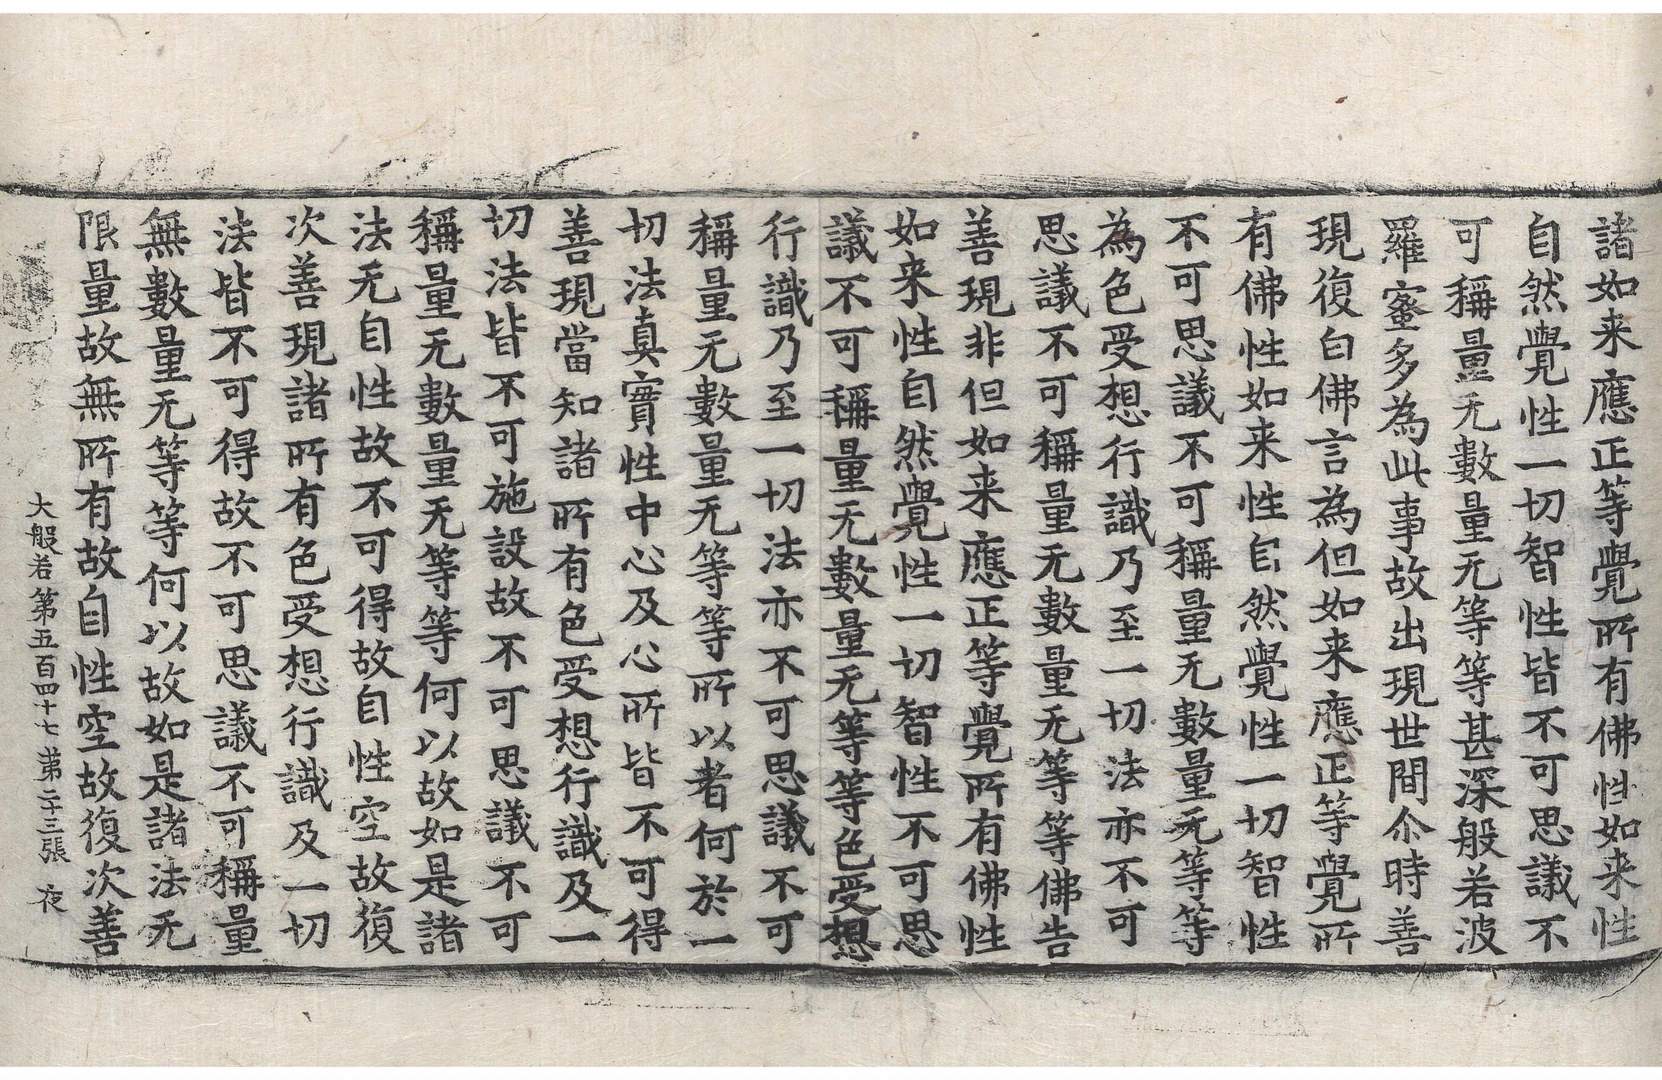 諸如来應正等覺所有佛性如来性
自然覺性一切智性皆不可思議不
可稱量无數量无等等甚深般若波
羅蜜多為此事故出現世間尒時善
現復白佛言為但如来應正等覺所
有佛性如来性自然覺性一切智性
不可思議不可稱量无數量无等等
為色受想行識乃至一切法亦不可
思議不可稱量无數量无等等佛告
善現非但如来應正等覺所有佛性
如来性自然覺性一切智性不可思
議不可稱量无數量无等等色受想
行識乃至一切法亦不可思議不可
稱量无數量无等等所以者何於一
切法真實性中心及心所皆不可得
善現當知諸所有色受想行識及一
切法皆不可施設故不可思議不可
稱量无數量无等等何以故如是諸
法无自性故不可得故自性空故復
次善現諸所有色受想行識及一切
法皆不可得故不可思議不可稱量
無數量无等等何以故如是諸法无
限量故無所有故自性空故復次善
大般若第五百四十七 第二十三張 夜